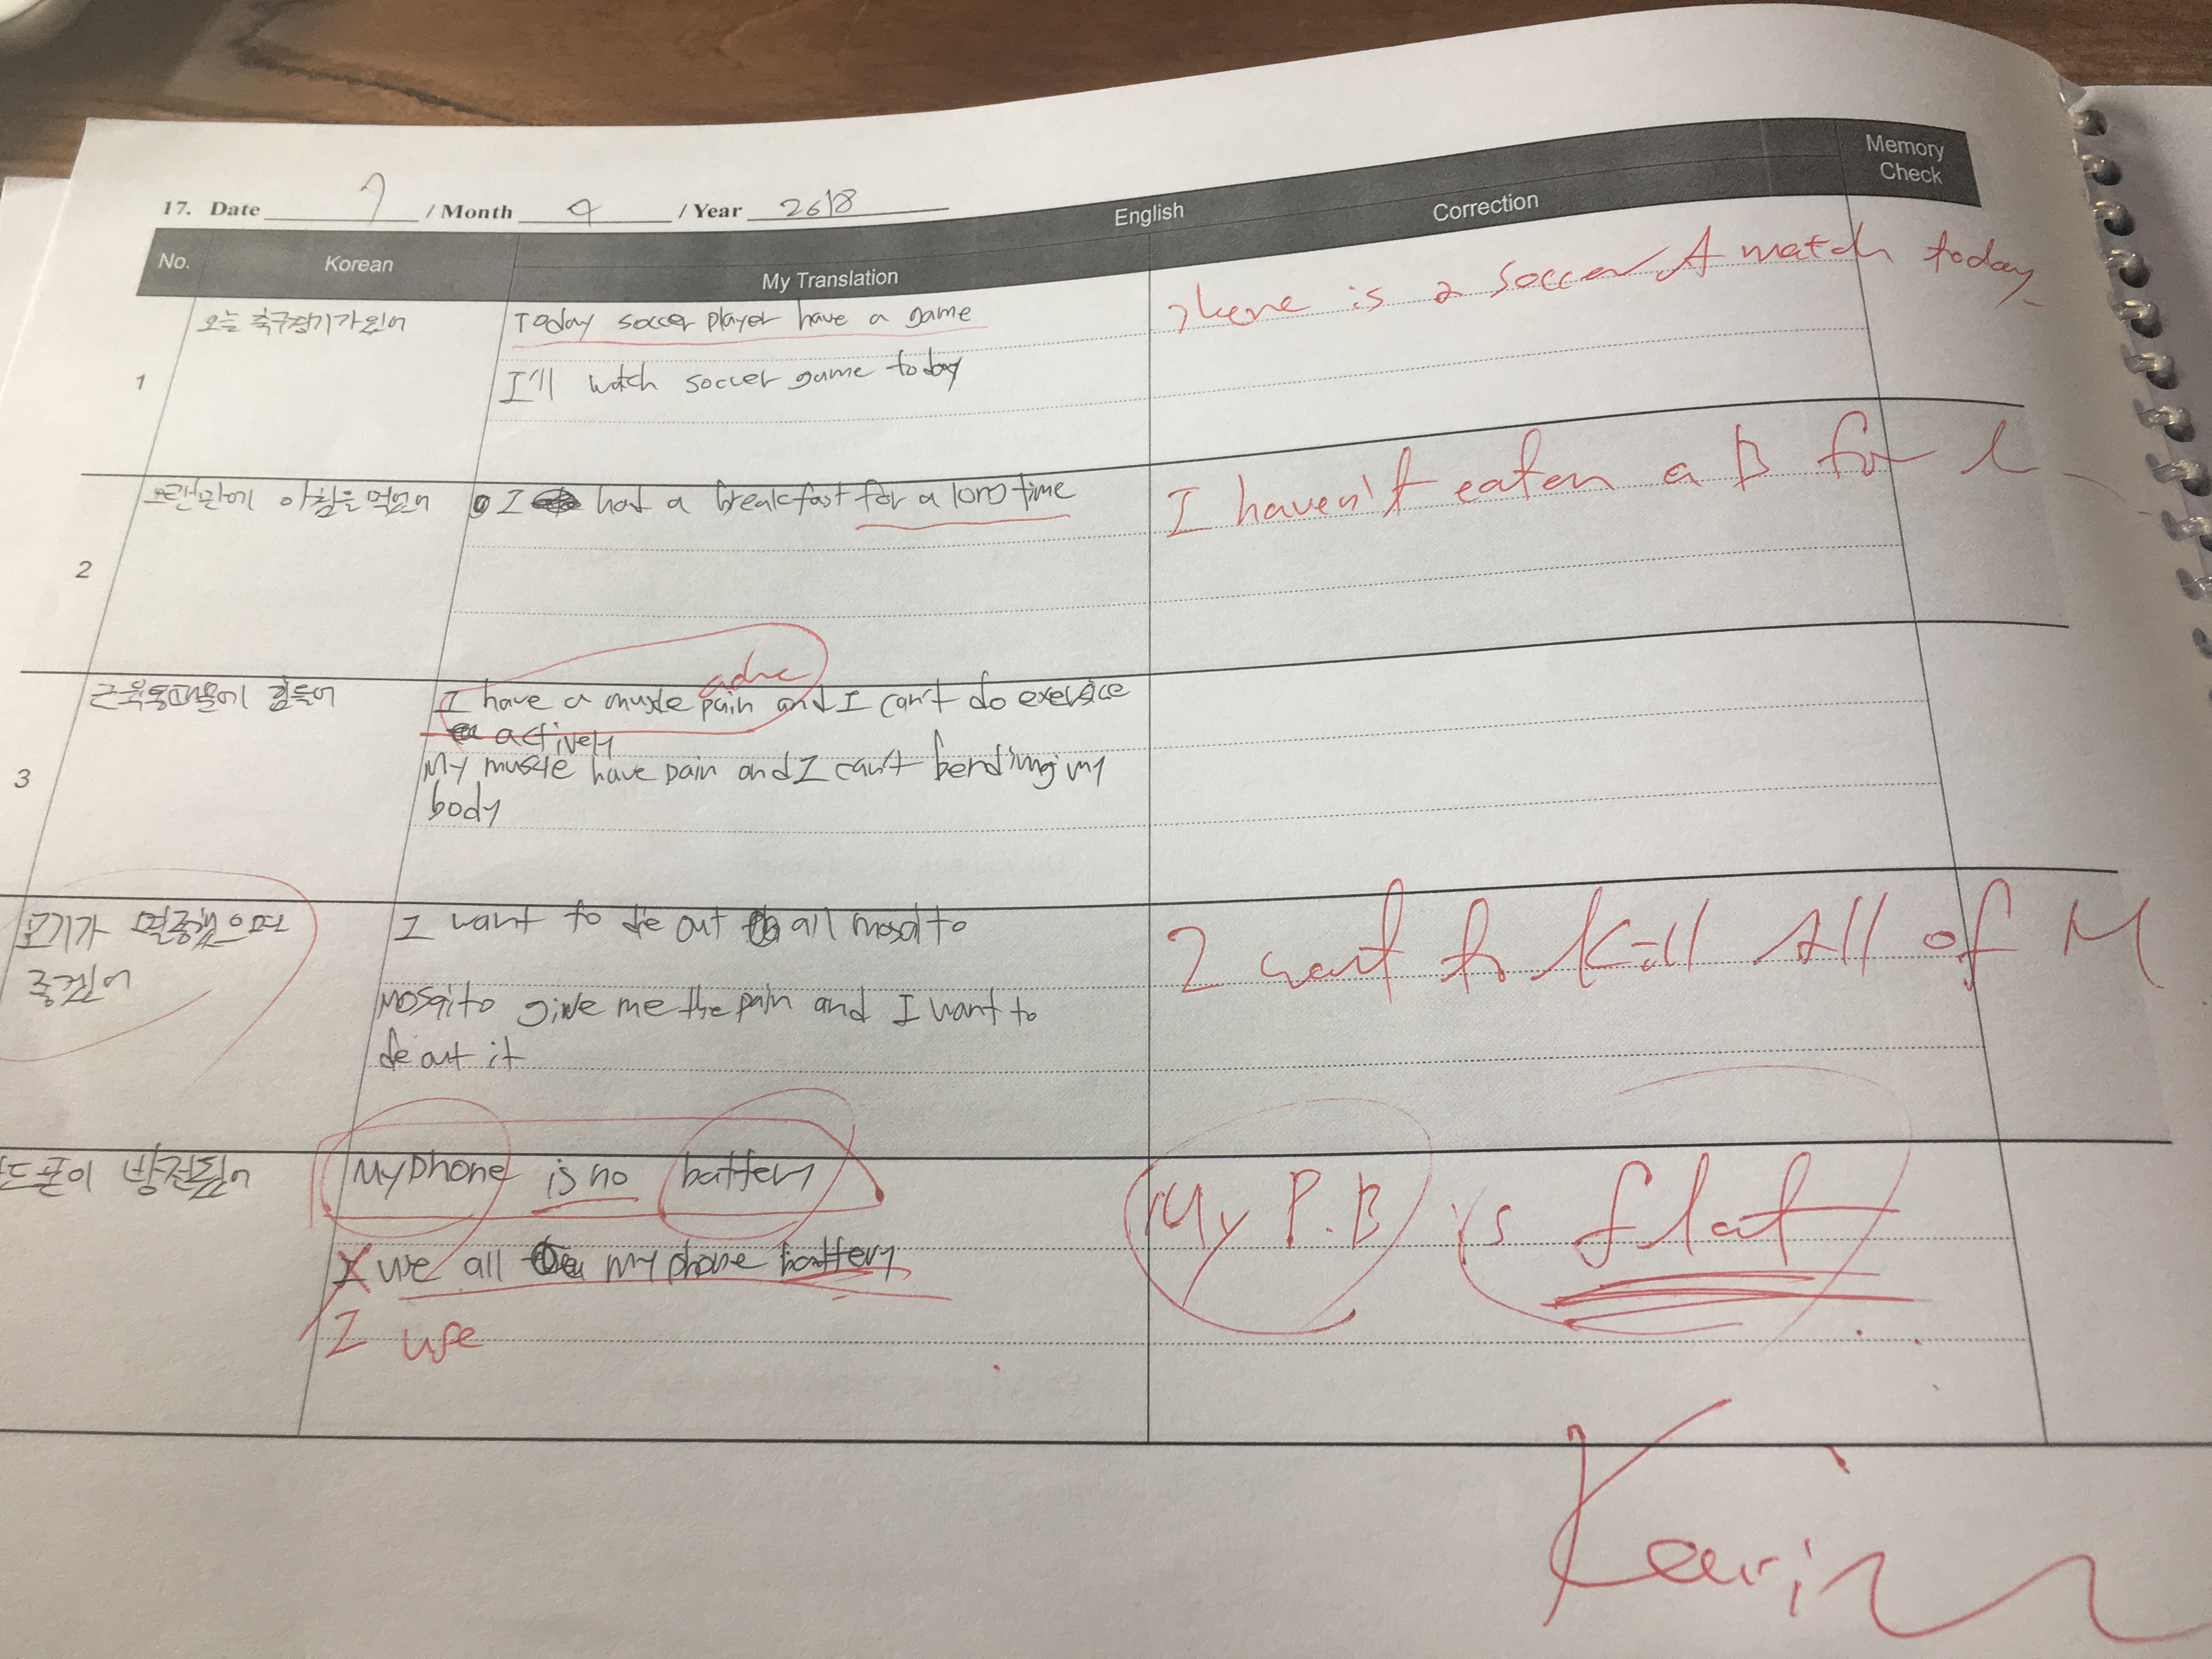 17. Date 7 / Month 9 / Year 2018
No. Korean English Memory Check
My Translation Correction
1 오늘 축구경기가 있어
Today soccer player have a game
I'll watch soccer game today
There is a soccer A match today
2 오랜만에 아침을 먹었어
I had a breakfast for a long time
I haven't eaten a B for l
3 근육통때문에 힘들어
ache
I have a muscle pain and I can't do exersice
actively
My muscle have pain and I can't bending my
body
모기가 멸종했으면
좋겠어
I want to die out all mosqito
Mosqito give me the pain and I want to
die out it
I want to kill All of M
드폰이 방전됬어
My phone is no battery
I use all my phone battery
I use
My P.B is flat
Kevin